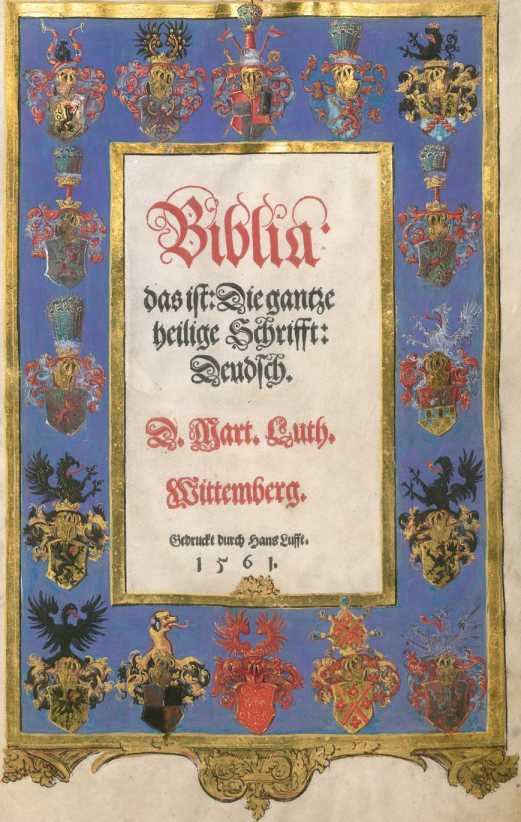 Biblia:
das ist: Die gantze
heilige Schrifft:
Deudsch.
D. Mart. Luth.
Wittemberg.
Gedruckt durch Hans Lufft.
1561.